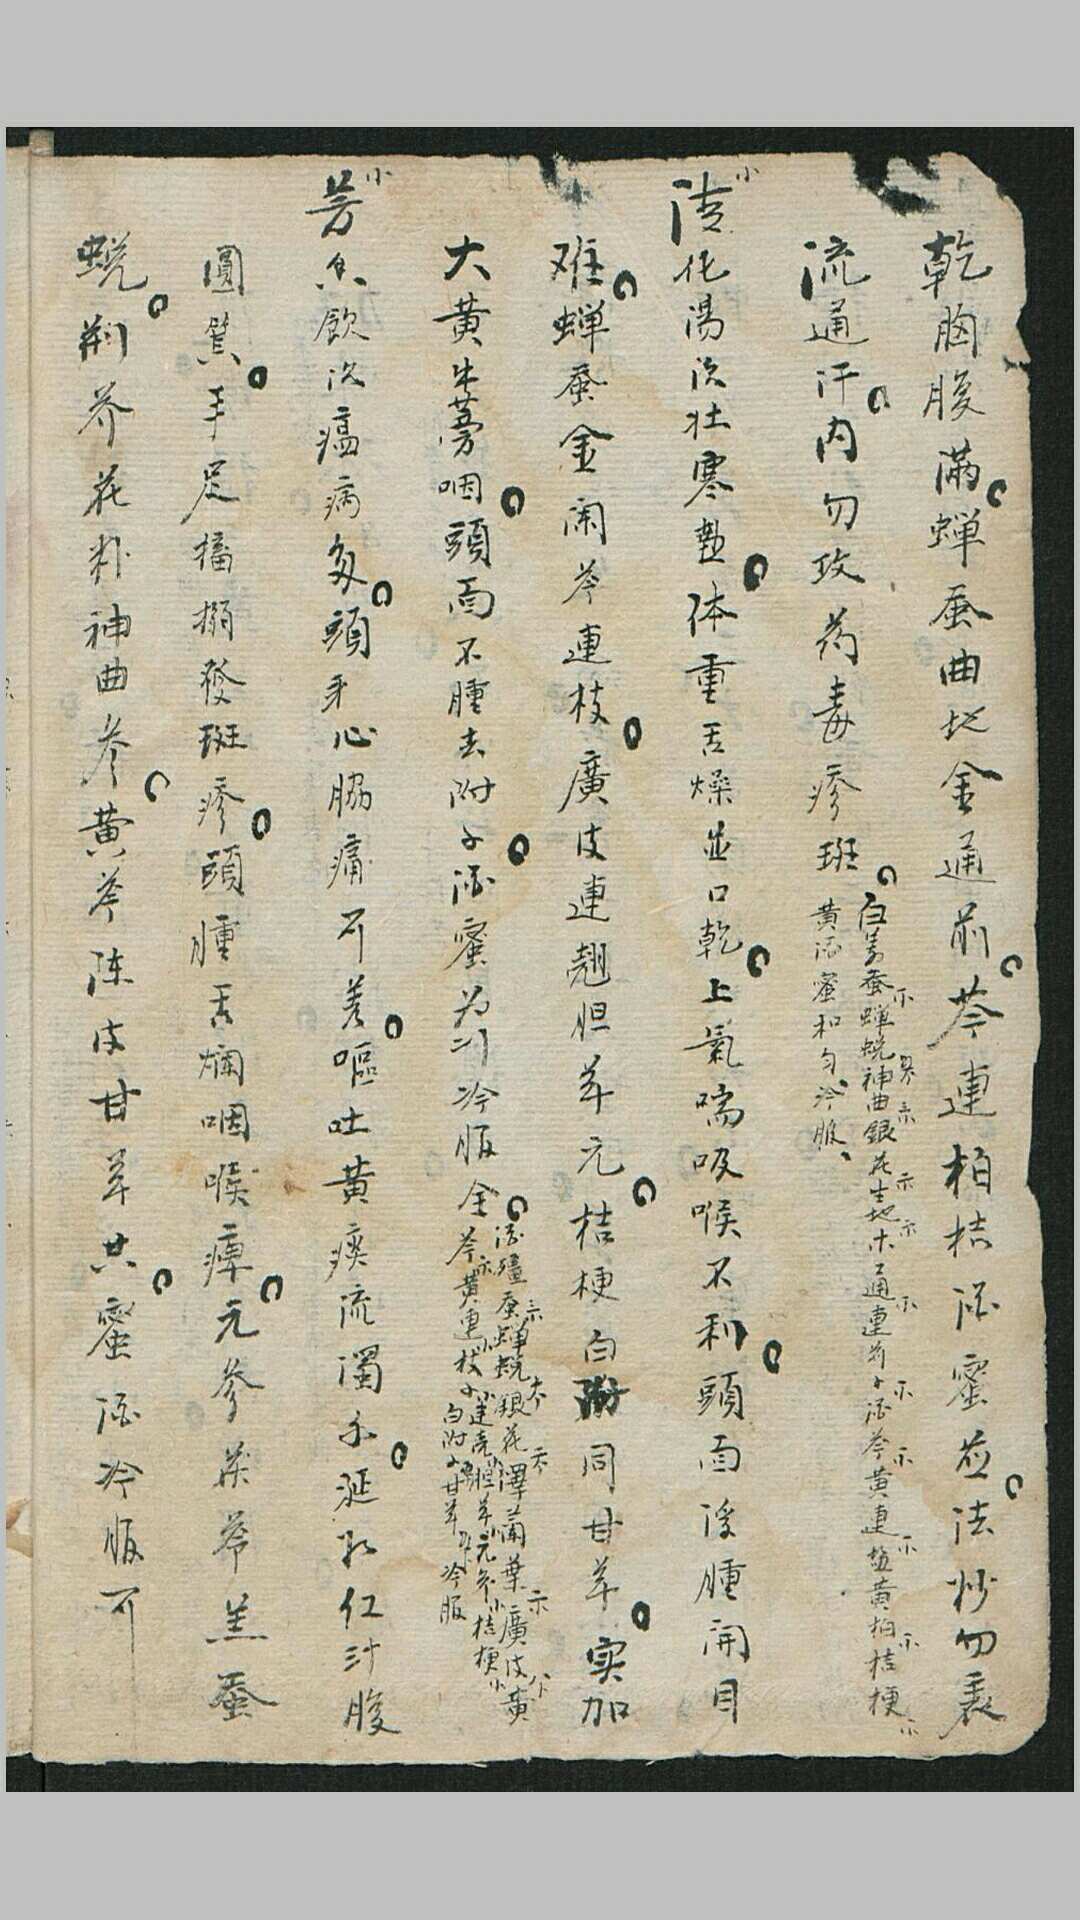 乾胸腹滿蟬蚕曲地金通前芩連柏桔酒蜜应法炒勿表
流通汗內勿攻药毒疹斑
白姜蚕蟬蛻神曲銀花生地木通連前子酒芩黄連塩黄柏桔梗
黄酒蜜和匀冷服
小
清化湯治壮寒熱体重舌燥並口乾上氣喘吸喉不利頭面浮腫開目
难蟬蚕金闹芩連枝廣皮連翹胆草元桔梗白附同甘草实加
大黄牛蒡咽頭面不腫去附子酒蜜为引冷服全
酒殭蚕蟬蛻銀花澤蘭葉廣皮黄
芩黄連枝子連壳胆草元参桔梗
白附子甘草冷服
小
芳香飲治瘟病多頭身心脇痛不差嘔吐黄痰流濁水涎紅仁汁腹
圓箕手足搐搦發斑疹頭腫舌爛咽喉痺元參茯苓羔蚕
蛻荊芥花粉神曲參黄芩陈皮甘草共蜜酒冷服可